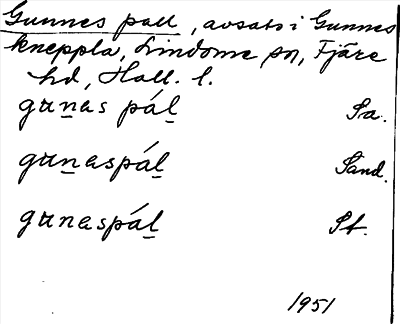 Gunnes pall, avsats i Gunnes
kneppla, Lindome sn, Fjäre
hd, Hall. l.
gunas pál Sa.
gunaspál Sand.
gunaspál St.
1951